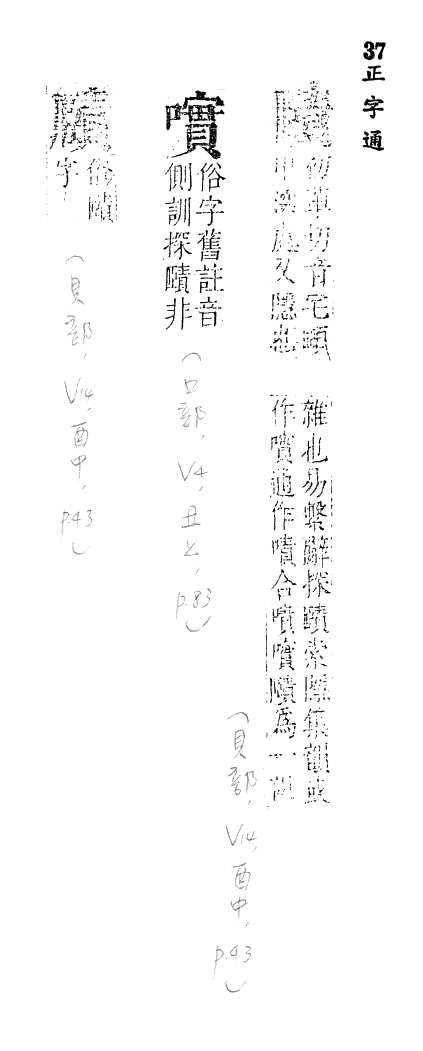 37 正字通
初革切音宅頤
中深處又隱也
雜也易繫辭探賾索隱集韻或
作嘖通作嘖合嘖𡂈賾為一訓
俗字舊註音
側訓探賾非
俗賾
字
(貝部, V14, 酉中, p.43)
(口部, V4, 丑上, p.83)
(貝部, V14, 酉中, p.43)